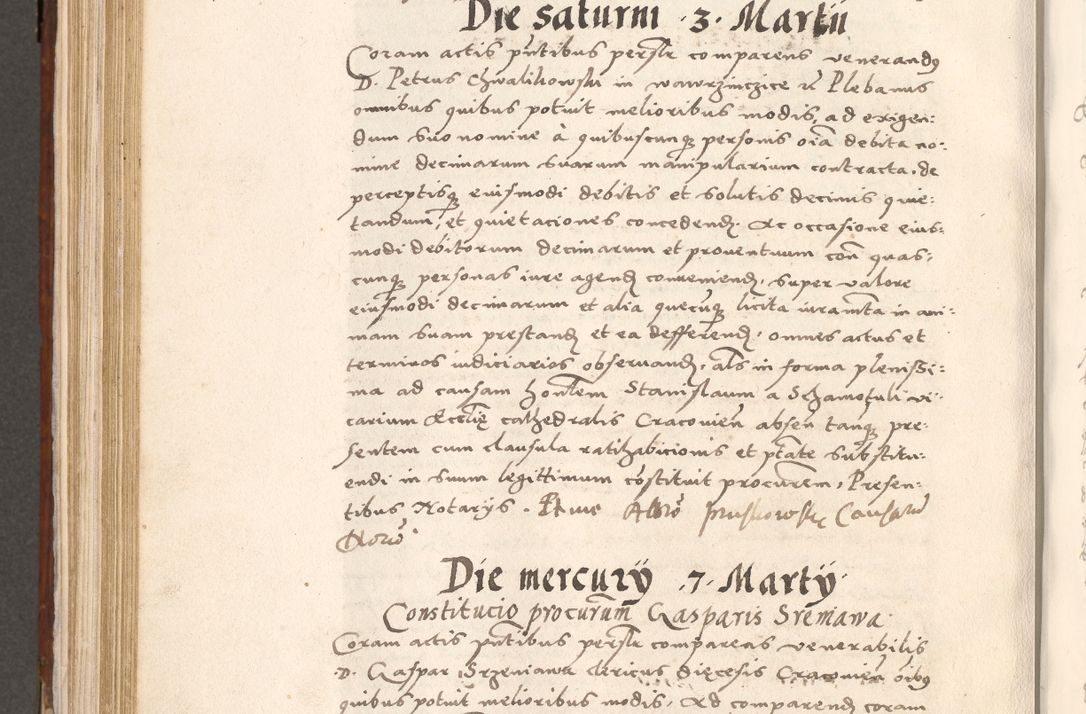 Die saturni .3. Martii
Coram actis pntibus personlr comparens venerandus
D. Petrus Chwalikowski in wawrzinczice etc Plebanus
omnibus quibus potuit melioribus modis, ad exigen:
dum suo nomine à quibuscunq personis oia debita no:
mine decimarum suarum manipularium contracta, de
perceptisq eiusmodi debitis et solutis decimis quie:
tandum, et quietaciones concedend. Ac occasione eius:
modi debitorum decimarum et proventuum con quas:
cunq personas iure agend conveniend, super valore
eiusmodi decimarum et alia quecuq licita iuramta in ani:
mam suam prestand et ea defferend, omnes actus et
terminos iudiciarios observand, als in forma plenissi:
ma ad causam honlem Stanislaum a Schamotuli vi:
carium Ecclie cathedralis Cracovien absen tanq pre:
sentem cum clausula ratihabicionis et ptate substitu:
endi in suum legittimum costituit procurem, Presen:
tibus Notarys. Causarum
Noro
Die mercury .7. Marty
Constitucio procurum Gasparis Sreniawa
Coram actis pntibus personlr comparens venerabilis
D. Gaspar Srzeniawa clericus diecesis Cracovien oibus
quibus potuit melioribus modis, Ad comparend coram